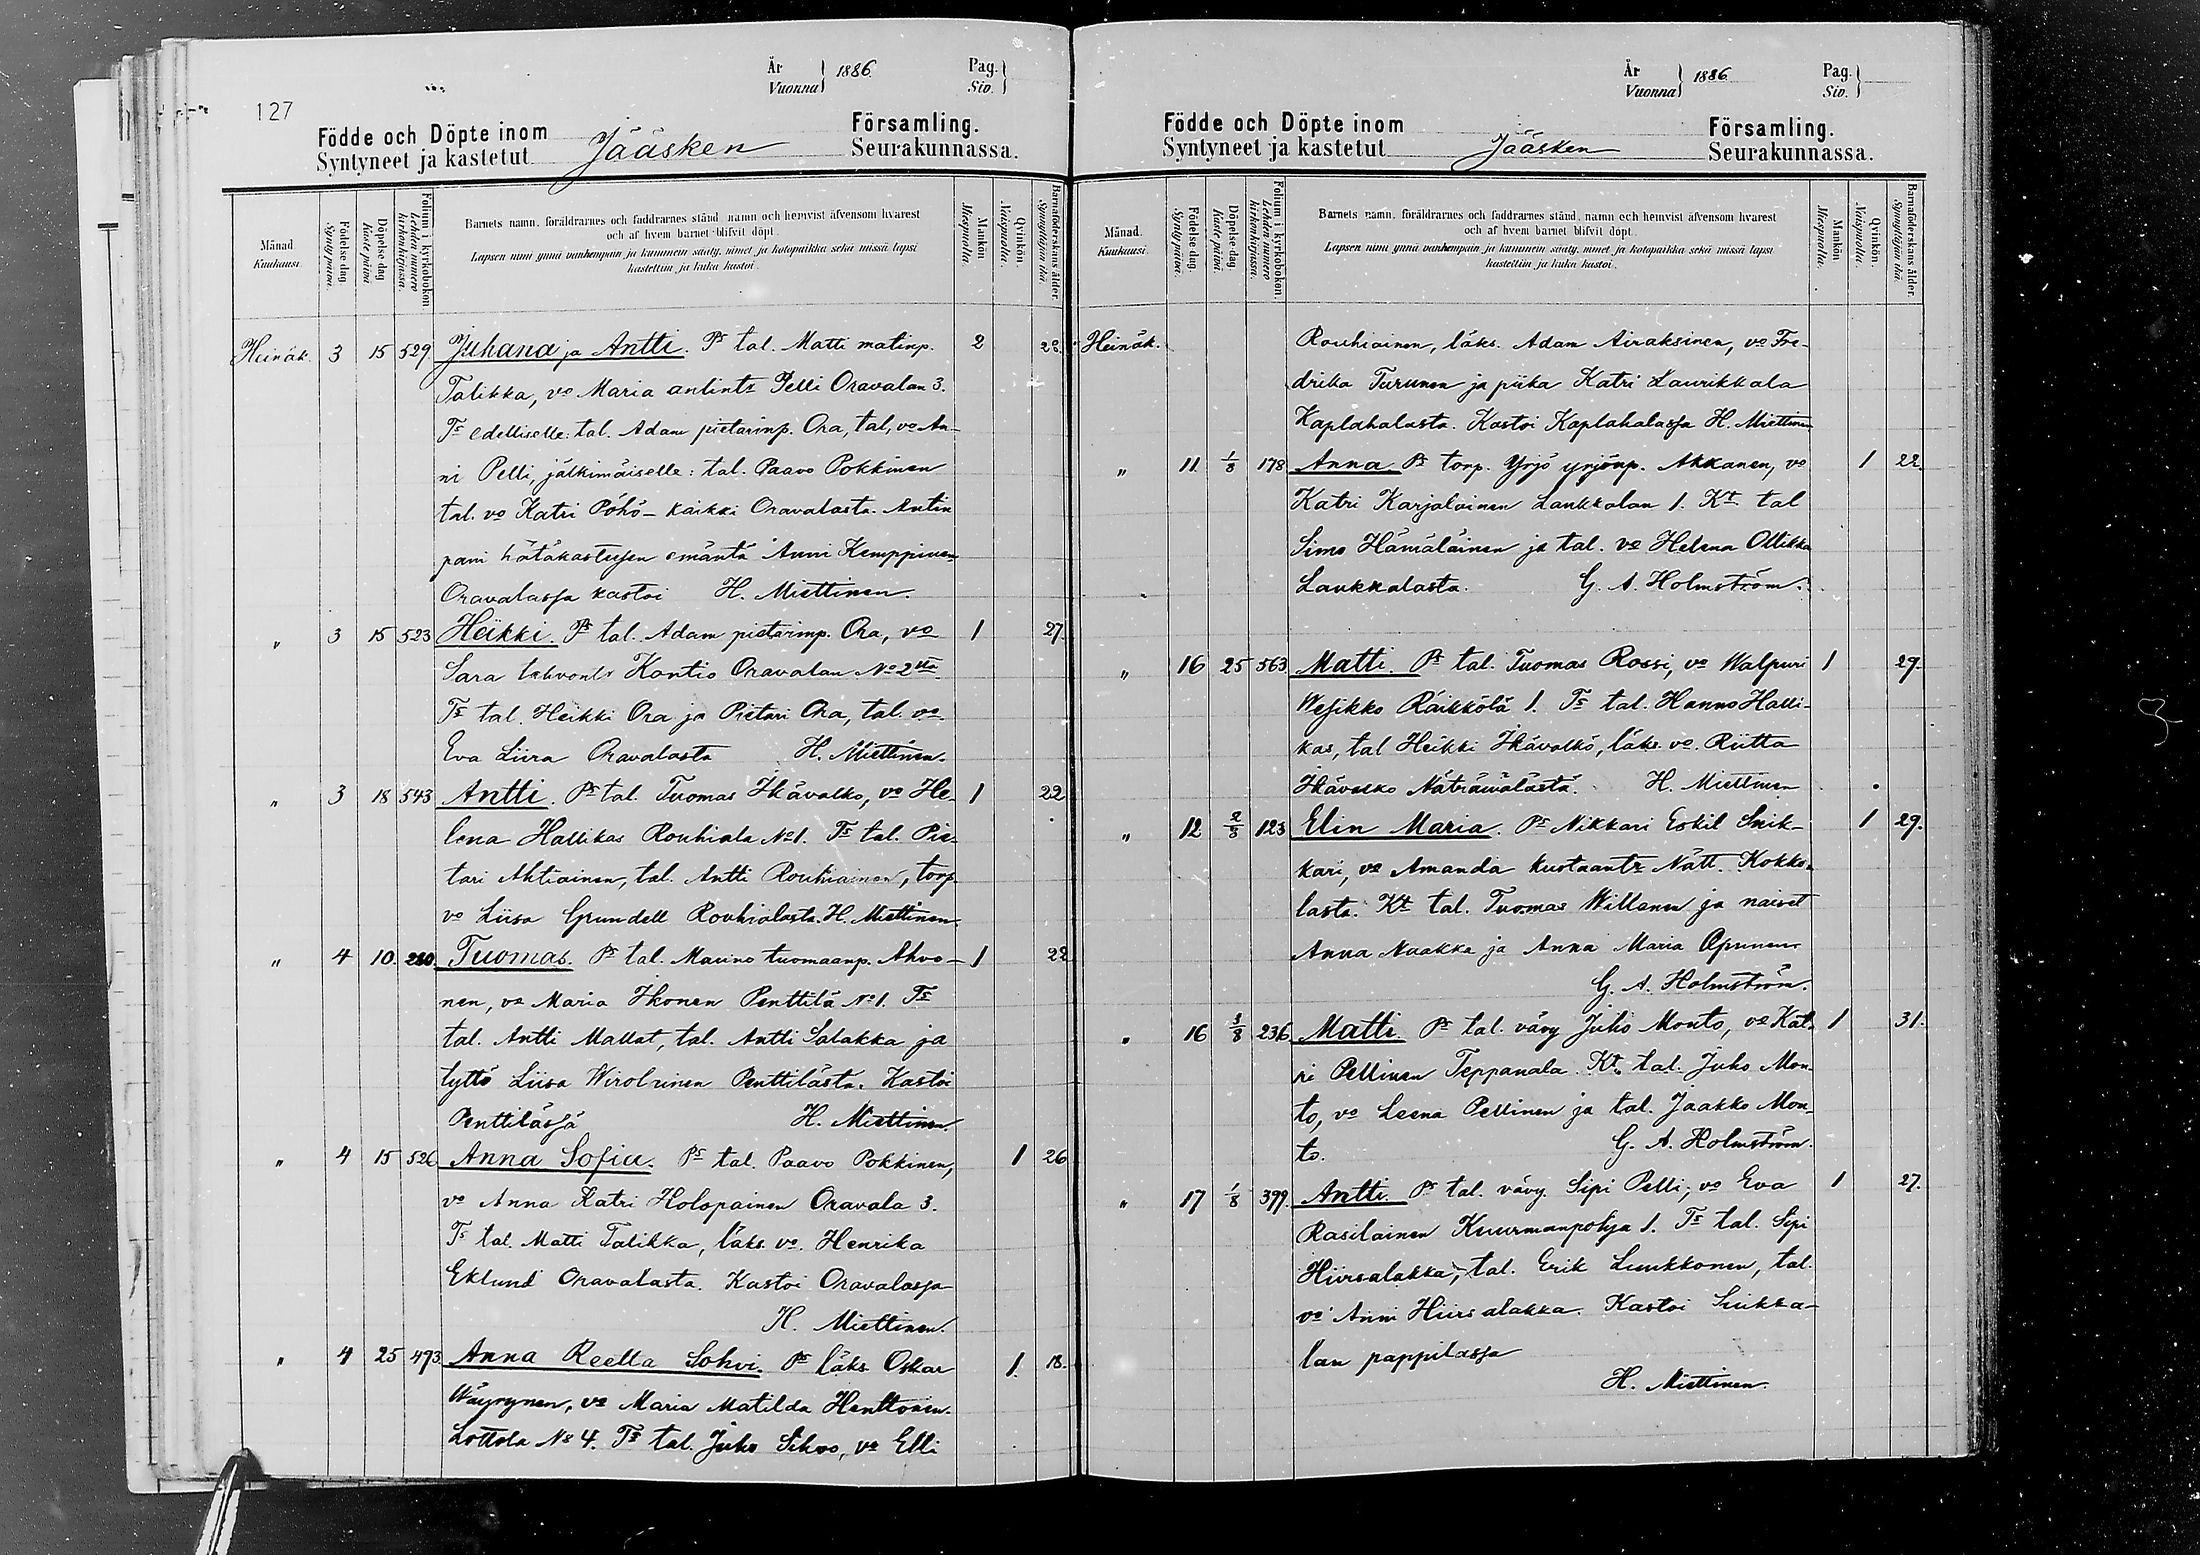 127
År
Vuonna } 1886.
Pag.
Siv. }
Födde och Döpte inom
Syntyneet ja kastetut Jääsken
Församling.
Seurakunnassa.
Månad.
Kuukausi.
Födelse dag.
Synty päivä.
Döpelse dag
Kaste päivä
Folium i kyrkoboken.
Lehden numero kirkonkirjassa.
Barnets namn, föräldrarnes och faddrarnes stånd, namn och hemvist äfvensom hvarest
och af hvem barnet blifvit döpt.
Lapsen nimi ynnä vanhempain ja kummein sääty, nimet ja kotopaikka sekä missä lapsi
kastettiin ja kuka kastoi.
Mankön.
Miespuolia.
Qvinkön.
Naispuolia.
Barnaföderskans ålder.
Synnyttäjän ikä.
Heinäk. 3 15 529 Juhana ja Antti. Ps tal. Matti matinp. 2 28.
Talikka, vo Maria antintr Pelli Oravalan 3.
Ts edelliselle: tal. Adam pietarinp. Ora, tal, vo An-
ni Pelli, jälkimäiselle: tal. Paavo Pokkinen
tal. vo Katri Pöhö - kaikki Oravalasta. Antin
pani hätäkasteesen emäntä Anni Kemppinen
Oravalassa kastoi H. Miettinen.
" 3 15 523 Heikki. Ps tal. Adam pietarinp. Ora, vo 1 27.
Sara tahvontr Kontio Oravalan No 2lta
Ts tal. Heikki Ora ja Pietari Ora, tal. vo
Eva Liira Oravalasta H. Miettinen.
" 3 18 543 Antti. Ps tal. Tuomas Ikävalko, vo He- 1 22
lena Hallikas Rouhiala No 1. Ts tal. Pie-
tari Ahtiainen, tal. Antti Rouhiainen, torp.
vo Liisa Grundell Rouhialasta. H. Miettinen.
" 4 10. 280 Tuomas. Ps tal. Mauno tuomaanp. Ahvo- 1 22
nen, vo Maria Ikonen Penttilä No 1. Ts
tal. Antti Mallat, tal. Antti Salakka ja
tyttö Liisa Wirolainen Penttilästä. Kastoi
Penttilässä H. Miettinen.
" 4 15 526 Anna Sofia. Ps tal. Paavo Pokkinen, 1 26
vo Anna Katri Holopainen Oravala 3.
Ts tal. Matti Talikka, läks. vo. Henrika
Eklund Oravalasta. Kastoi Oravalassa
H. Miettinen.
" 4 25 493 Anna Reetta Sohvi. Ps läks Oskar 1. 18.
Wäyrynen, vo Maria Matilda Henttonen.
Lottola No 4. Ts tal. Juho Sihvo, vo Elli
År
Vuonna } 1886.
Pag.
Siv. }
Födde och Döpte inom
Syntyneet ja kastetut Jääsken
Församling.
Seurakunnassa.
Månad.
Kuukausi.
Födelse dag.
Synty päivä.
Döpelse dag
Kaste päivä
Folium i kyrkoboken.
Lehden numero kirkonkirjassa.
Barnets namn, föräldrarnes och faddrarnes stånd, namn och hemvist äfvensom hvarest
och af hvem barnet blifvit döpt.
Lapsen nimi ynnä vanhempain ja kummein sääty, nimet ja kotopaikka sekä missä lapsi
kastettiin ja kuka kastoi.
Mankön
Miespuolia.
Qvinkön.
Naispuolia.
Barnaföderskans ålder.
Synnyttäjän ikä.
Heinäk. Rouhiainen, läks. Adam Airaksinen, vo Fre-
drika Turunen ja piika Katri Laurikkala
Kaplahalasta. Kastoi Kaplahalassa H. Miettinen
" 11 1/8 178 Anna. Ps torp. Yrjö yrjönp. Akkanen, vo 1 22.
Katri Karjalainen Laukkalan 1. Kt tal
Simo Hämäläinen ja tal. vo Helena Ollikka
Laukkalasta. G. A. Holmström.
" 16 25 563 Matti. Ps tal. Tuomas Rossi, vo Walpuri 1 29.
Wesikko Räikkölä 1. Ts tal. Hannes Halli-
kas, tal Heikki Ikävalko, läks. vo. Riitta
Ikävalko Näträmälästä. H. Miettinen
" 12 2/8 123 Elin Maria. Ps Nikkari Eskil Snik- 1 29.
kari, vo Amanda kustaantr Nätt. Kokko-
lasta. Kt tal. Tuomas Willanen ja naiset
Anna Naakka ja Anna Maria Opunen
G. A. Holmström.
" 16 3/8 236 Matti. Ps tal. vävy Juho Monto, vo Kat- 1 31.
ri Pellinen Teppanala. Kt. tal. Juho Mon-
to, vo Leena Pellinen ja tal. Jaakko Mon-
to. G. A. Holmström.
" 17 1/8 399. Antti. Ps tal. vävy. Sipi Pelli, vo Eva 1 27.
Rasilainen Kuurmanpohja 1. Ts tal. Sipi
Hiirsalakka, tal. Erik Luukkonen, tal.
vo Anni Hiirsalakka. Kastoi Siikka-
lan pappilassa
H. Miettinen.